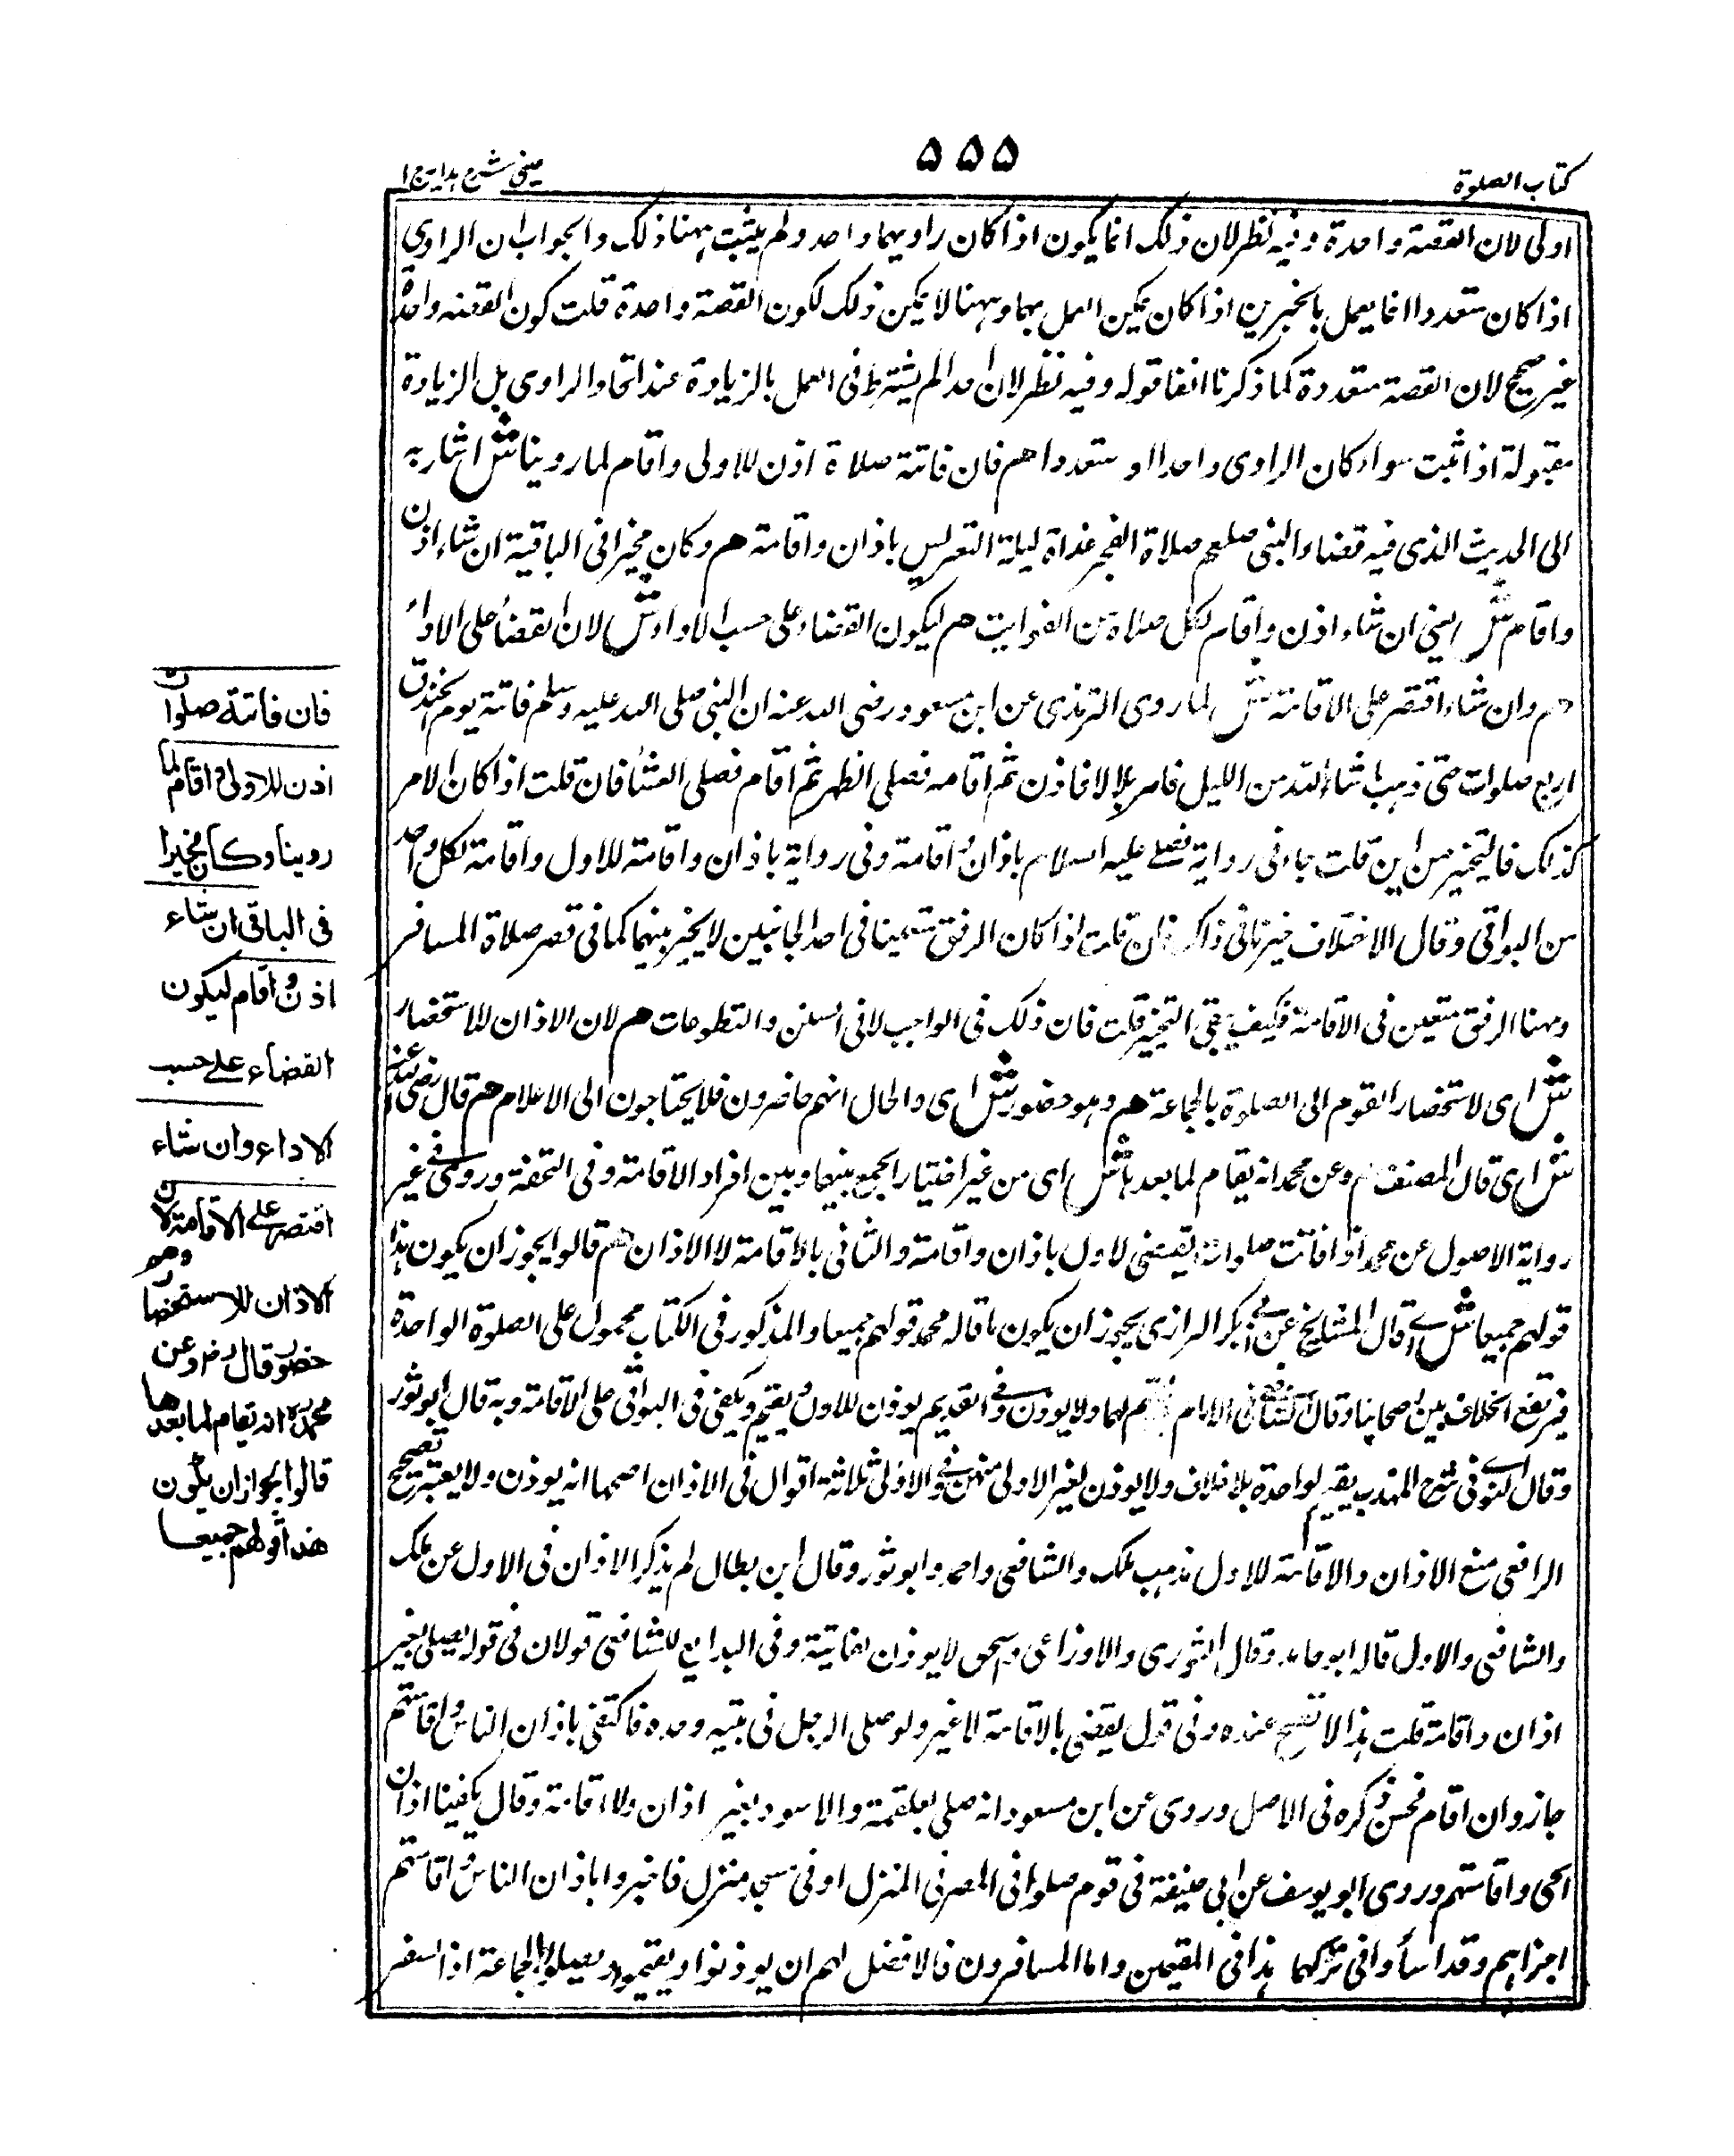 كتاب الصلوة
۵۵۵
عينى شرح هدايه ج ا
اولى لان القصة واحدة وفيه نظر لان ذلك انما يكون اذا كان راويهما واحد ولم يثبت ههنا ذلك والجواب ان الراوى
اذا كان متعددا انما يعمل بالخبرين اذا كان يمكن العمل بهما وههنا لا يمكن ذلك لكون القصة واحدة قلت كون القصة واحدة
غير صحيح لان القصة متعددة كما ذكرنا انفا قوله وفيه نظر لان احدا لم يشترط فى العمل بالزيادة عند اتحاد الراوى بل الزيادة
مقبولة اذا ثبت سواء كان الراوى واحدا او متعددا هم فان فاتته صلاة اذن للاولى واقام لما روينا ش اشار به
الى الحديث الذى فيه قضاء النبى صلعم صلاة الفجر غداة ليلة التعريس باذان واقامة هم وكان مخيرا فى الباقية ان شاء اذن
واقام ش يعنى ان شاء اذن واقام لكل صلاة من الفوايت هم ليكون القضاء على حسب الاداء ش لان القضاء على الاداء
هم وان شاء اقتصر على الاقامة ش لما روى الترمذى عن ابن مسعود رضى الله عنه ان النبى صلى الله عليه وسلم فاتته يوم الخندق
اربع صلوات حتى ذهب ما شاء الله من الليل فامر بلالا فاذن ثم اقامه فصلى الظهر ثم اقام فصلى العشاء فان قلت اذا كان الامر
كذلك فالتخيير من اين قلت جاء فى رواية فصلے عليه السلام باذان واقامة وفى رواية باذان واقامة للاول واقامة لكل واحد
من البواقى وقال الاختلاف خيرنا فى ذلك فان قلت اذا كان الرفق متعينا فى احد الجانبين لا يخير بينهما كما فى قصر صلاة المسافر
وههنا الرفق متعين فى الاقامة فكيف يقى التخيير قلت فان ذلك فى الواجب لا فى السنن والتطوعات هم لان الاذان للاستحضار
ش اى لاستحضار القوم الى الصلوة بالجماعة هم وهو حضور ش اى والحال انهم حاضرون فلا يحتاجون الى الاعلام هم قال رضى الله عنه
ش اى قال المصنف هم وعن محمد انه يقام لما بعدها ش اى من غير اختيار الجمع بينها وبين افراد الاقامة وفى التحفة وروى فے غير
رواية الاصول عن محمد اذا فاتت صلوات يقضى لاول باذان واقامة والثانى بالاقامة لا الاذان هم قالوا يجوز ان يكون هذا
قولهم جميعا ش اے قال المشايخ عن ابى بكر الرازى يجوز ان يكون ما قاله محمد قولهم جميعا والمذكور فى الكتاب محمول على الصلوة الواحدة
فيرتفع الخلاف بين اصحابنا وقال الشافعى فى الام يقيم لها ولا يوذن وفے القديم يوذن للاول ويقيم ويكفى فى البواقى على الاقامة وبه قال ابو ثور
وقال النووى فى شرح المهذب يقيم لواحدة بلا خلاف ولا يوذن لغير الاولى منهن وفے الاولى ثلاثة اقوال فى الاذان اصحها انه يوذن ولا يعتبر تصحيح
الرافعى منع الاذان والاقامة للاول مذهب مالك والشافعى واحمد وابو ثور وقال ابن بطال لم يذكر الاذان فى الاول عن مالك
والشافعى والاول قاله ابو حامد وقال الثورى والاوزاعى واسحق لا يوذن لفايتة وفى البدايع للشافعى قولان فى قوله يصلى بغير
اذان واقامة قلت هذا لا يصح عنده وفى قول يقضى بالاقامة لا غير ولو صلى الرجل فى بيته وحده فاكتفى باذان الناس واقامتهم
جاز وان اقام فحسن ذكره فى الاصل وروى عن ابن مسعود انه صلى بعلقمة والاسود بغير اذان ولا اقامة وقال يكفينا اذان
الحى واقامتهم وروى ابو يوسف عن ابى حنيفة فى قوم صلوا فى المصر فى المنزل او فى مسجد منزل فاخبروا باذان الناس واقامتهم
اجزاهم وقد اساوا فى تركهما هذا فى المقيمين واما المسافرون فالافضل لهم ان يوذنوا ويقيموا ويصلوا بالجماعة اذا السفر
فان فاتته صلوات
اذن للاولى واقام لما
روينا وكان مخيرا
فى الباقى ان شاء
اذن واقام ليكون
القضاء علے حسب
الاداء وان شاء
اقتصر علے الاقامة لان
الاذان للاستحضار وهم
حضور قال رض وعن
محمد ره انه يقام لما بعدها
قالوا يجوز ان يكون
هذا قولهم جميعا